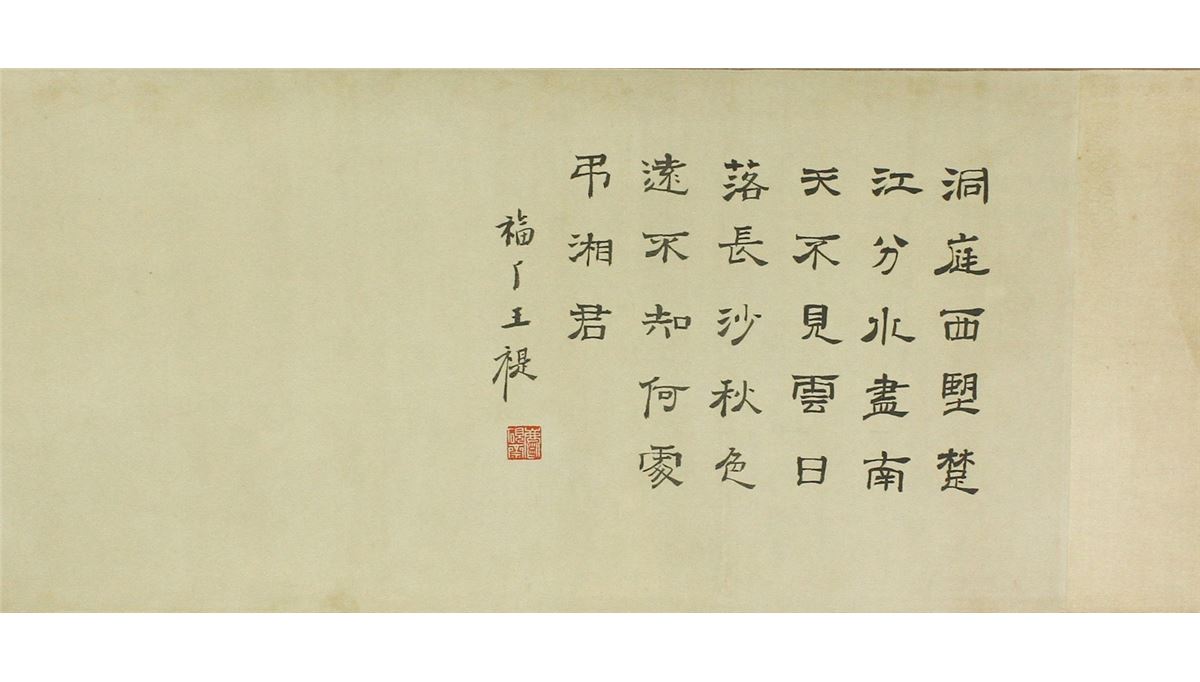 洞庭西朢楚
江分水盡南
天不見雲日
落長沙秋色
遠不知何處
弔湘君
福厂王禔